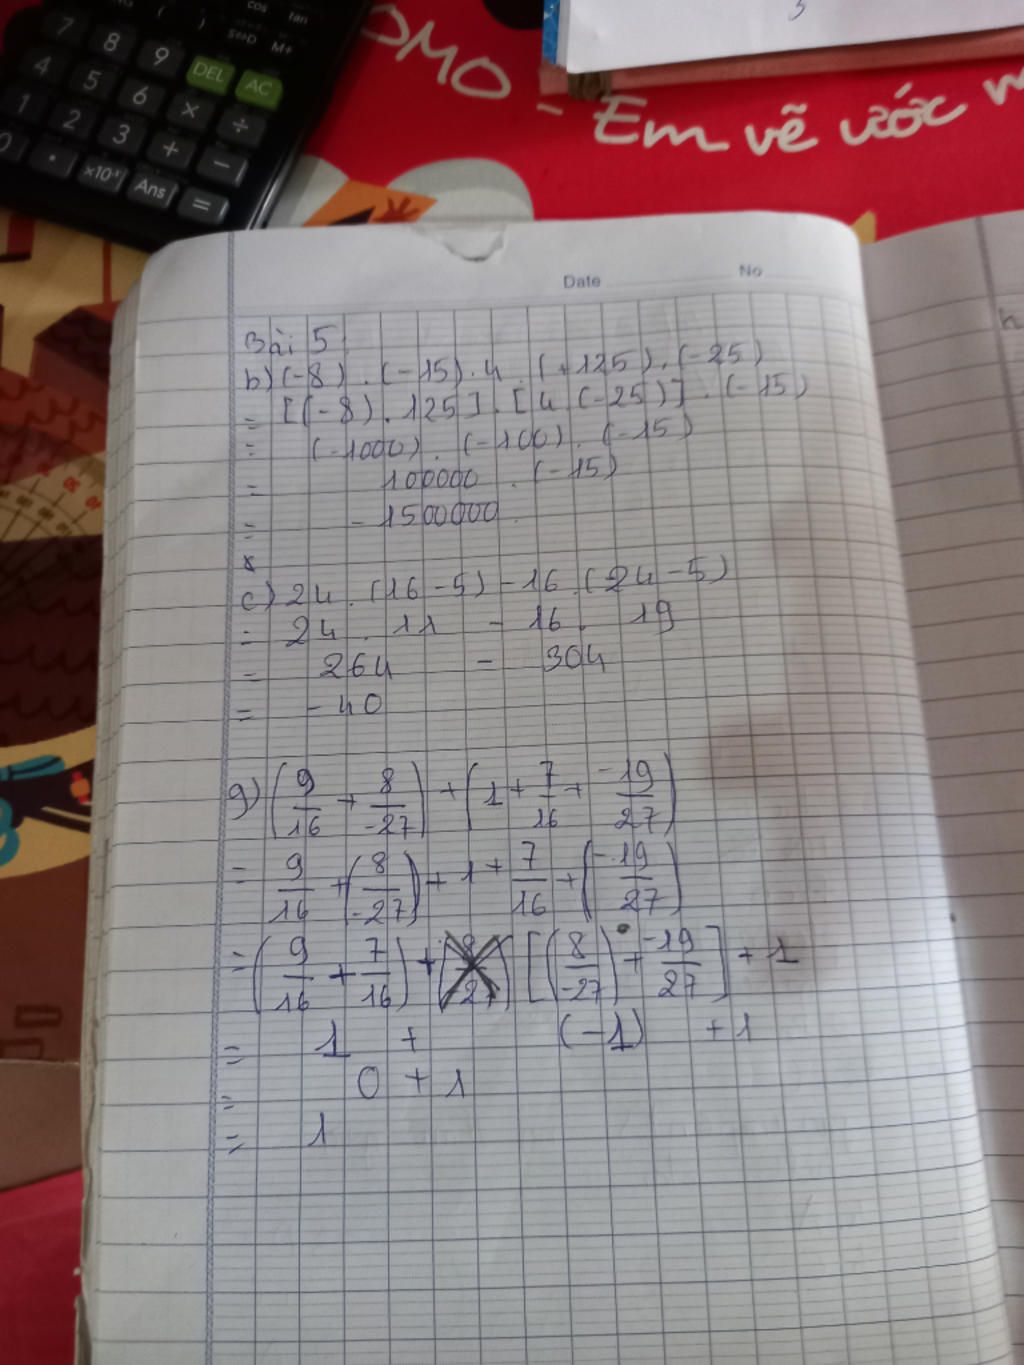 cos tan
7 8 9 DEL AC S⇔D M+
4 5 6 × ÷
1 2 3 + −
0 . ×10ˣ Ans =
OMO - Em vẽ ước
Date No
Bài 5
b) (-8) . (-15) . 4 . (+125) . (-25)
= [(-8) . 125] . [4 (-25)] . (-15)
= (-1000) . (-100) . (-15)
= 100000 . (-15)
= - 1500000
c) 24 . (16 - 5) - 16 . (24 - 5)
= 24 . 11 - 16 . 19
= 264 - 304
= - 40
g) (9/16 + 8/-27) + (1 + 7/16 + -19/27)
= 9/16 + (8/-27) + 1 + 7/16 + (-19/27)
= (9/16 + 7/16) + [(8/-27) + -19/27] + 1
= 1 + (-1) + 1
= 0 + 1
= 1